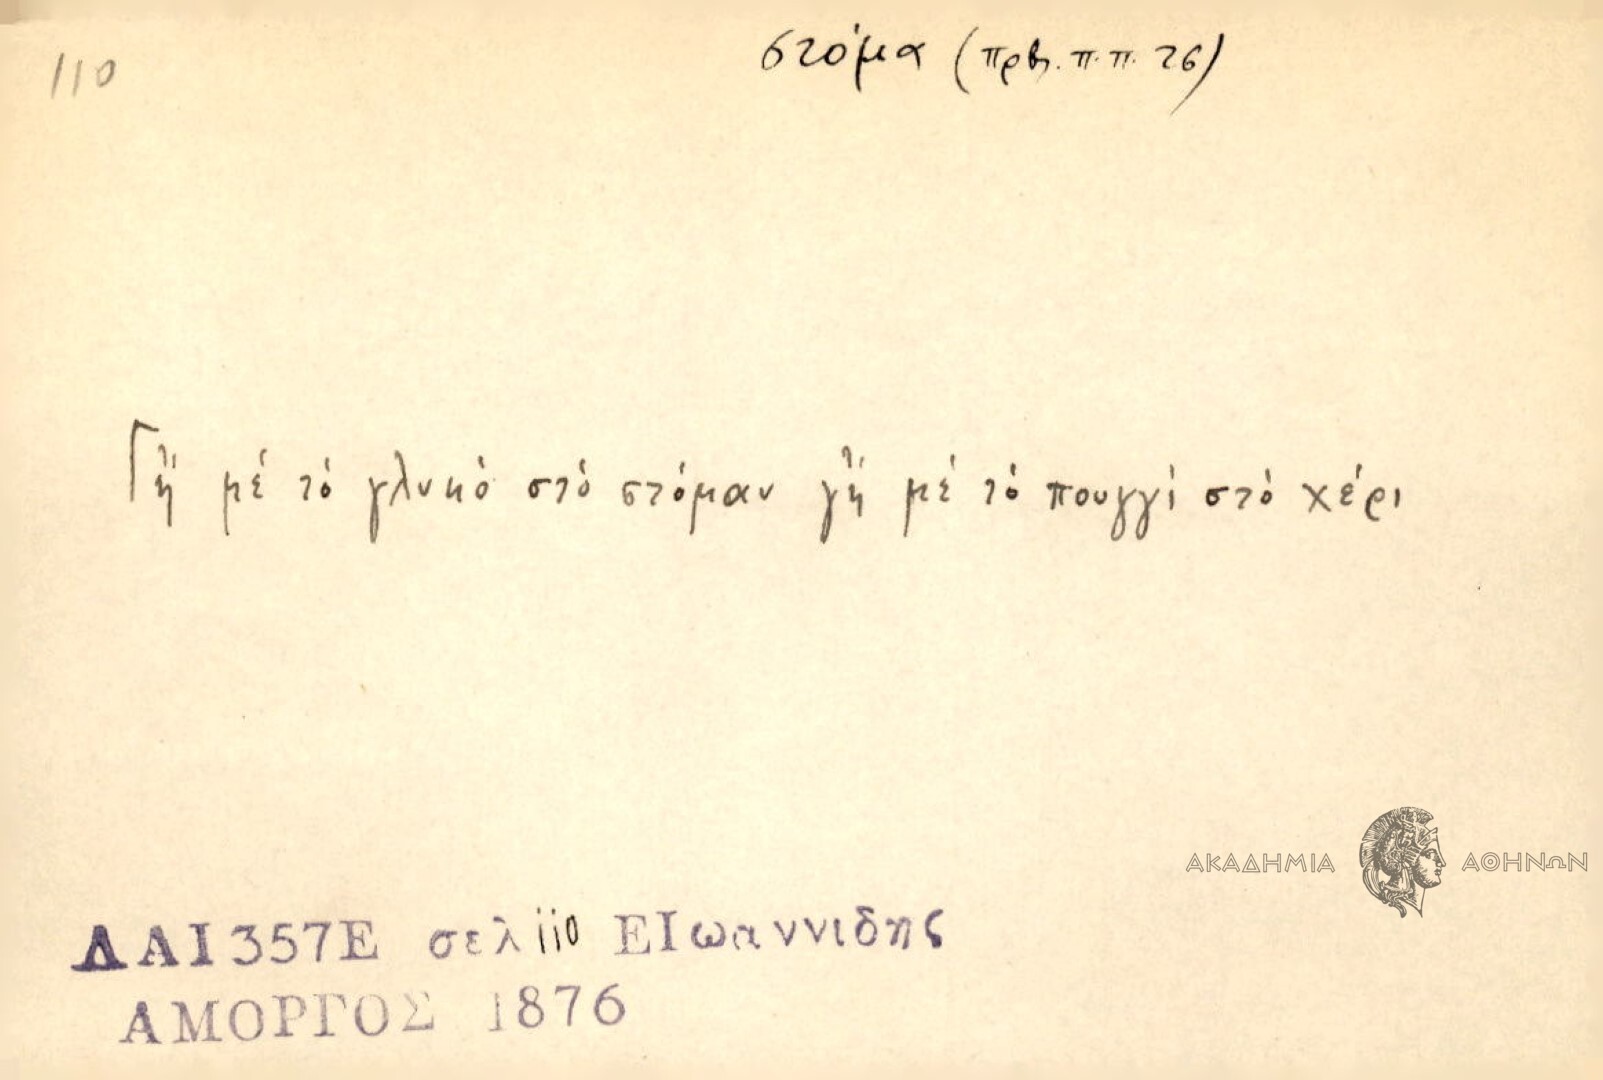 110
στόμα (πρβ. π.π. 26)
Γἤ μέ τό γλυκό στό στόμαν γἤ μέ τό πουγγί στό χέρι
ΑΚΑΔΗΜΙΑ ΑΘΗΝΩΝ
ΔΑΙ357Ε σελ 110 ΕΙωαννιδης
ΑΜΟΡΓΟΣ 1876